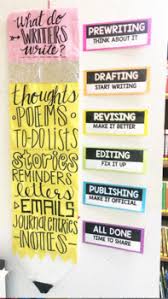 what do
WRITERS
write?
thoughts
POEMS
TO-DO LISTS
Stories
REMINDERS
letters
& EMAILS
Journal Entries
NOTES
PREWRITING
THINK ABOUT IT
DRAFTING
START WRITING
REVISING
MAKE IT BETTER
EDITING
FIX IT UP
PUBLISHING
MAKE IT OFFICIAL
ALL DONE
TIME TO SHARE